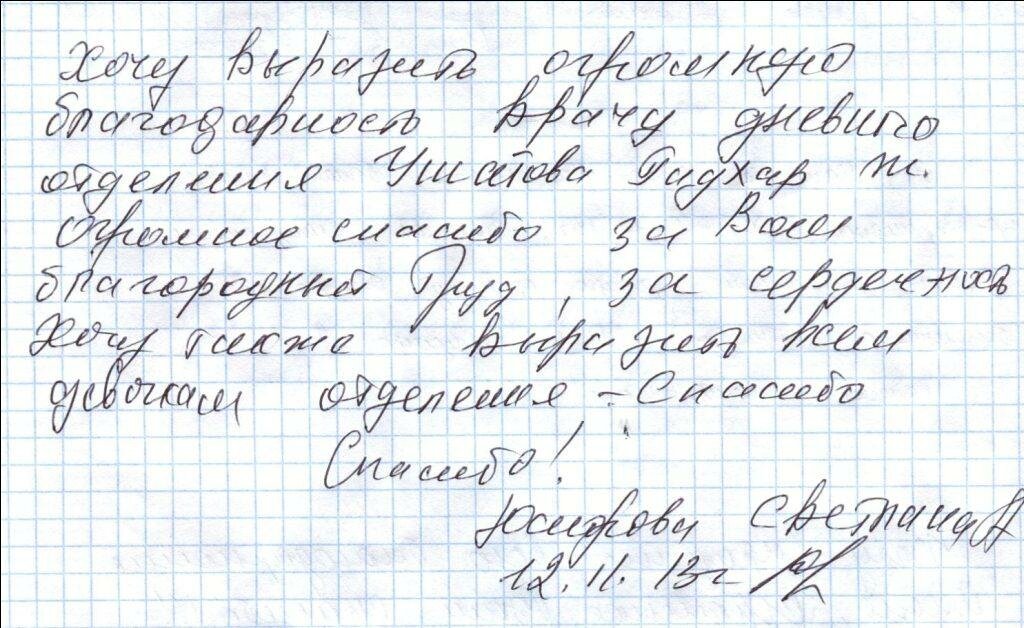 Хочу выразить огромную
благодарность врачу дневного
отделения Ушатова Гаухар Ж.
Огромное спасибо за Ваш
благородный Труд, за сердечность
Хочу также выразить всем
девочкам отделения - Спасибо
Спасибо!
Светлана
12.11.13г